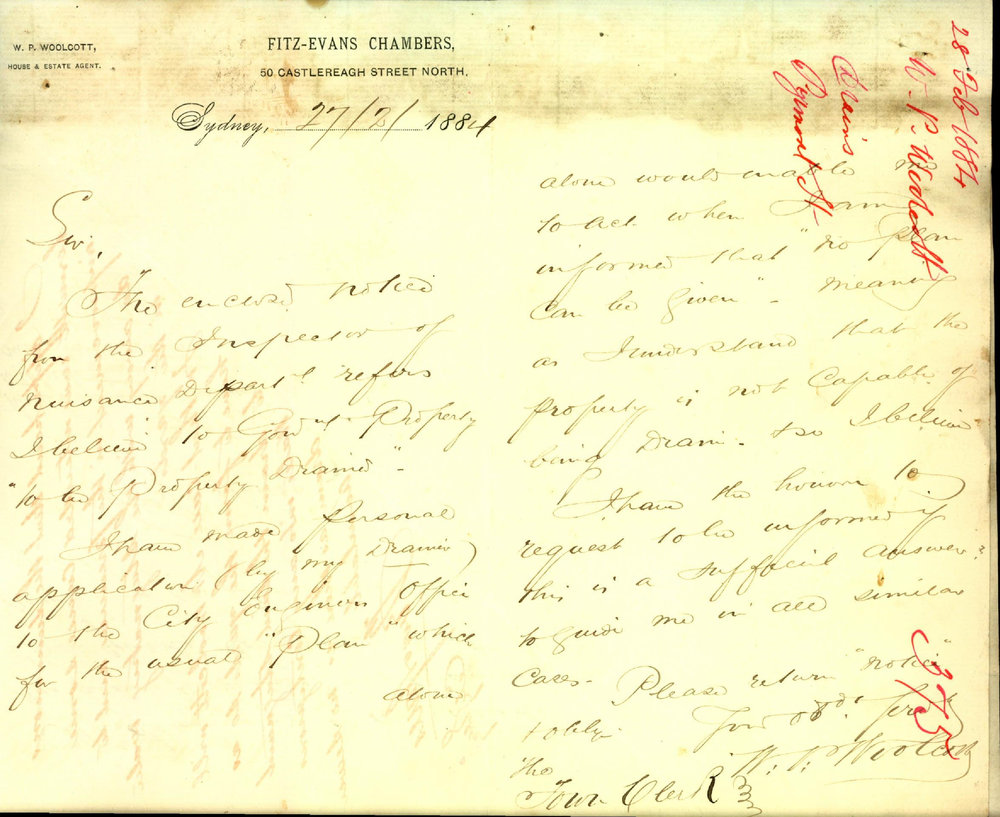 W. P. WOOLCOTT,
HOUSE & ESTATE AGENT.
FITZ-EVANS CHAMBERS,
50 CASTLEREAGH STREET NORTH,
Sydney, 27/2/ 1884
Sir,
The enclosed notice
from the Inspector of
Nuisance Depart refers
I believe to Govt Property
"to be Property Drained".
I have made personal
application (by my Drainer)
to the City Engineers Office
for the usual "Plan" which
alone
alone would enable me
to act when I am
informed that "no plan
can be given" - meaning
as I understand that the
property is not capable of
being Drain - so I believe
I have the honor to
request to be informed if
this is a sufficient answer?
to guide me in all similar
Cases -
Please return "notice"
& oblige
Your obdt Servt
W. P. Woolcott
The
Town Clerk
28 Feb 1884
W. P. Woolcott
Drains
Pyrmont St
375